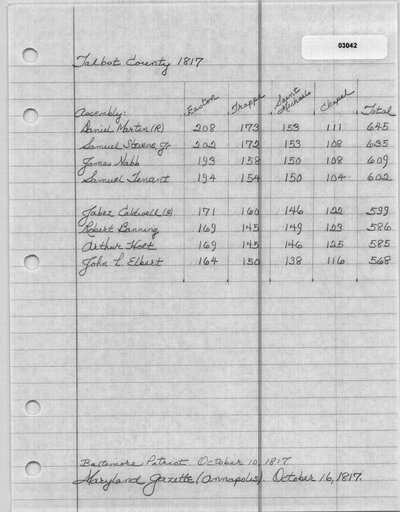 03042
Talbot County 1817
Assembly: Easton Trappe Saint Michaels Chapel Total
Daniel Martin (R) 208 173 153 111 645
Samuel Stevens, Jr 202 172 153 108 635
James Nabb 193 158 150 108 609
Samuel Tenant 194 154 150 104 602
Jabez Caldwell (F) 171 160 146 122 599
Robert Banning 169 145 149 123 586
Arthur Holt 169 145 146 125 585
John L. Elbert 164 150 138 116 568
Baltimore Patriot. October 10, 1817
Maryland Gazette (Annapolis). October 16, 1817.